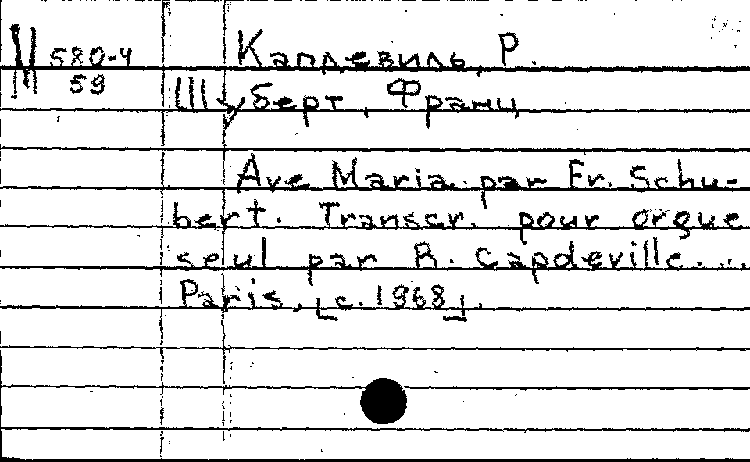 М 580-4 Капдевиль, Р.
59
Шуберт, Франц
Ave Maria par Fr. Schu-
bert. Transcr. pour orgue
seul par R. Capdeville...
Paris, [c. 1968].